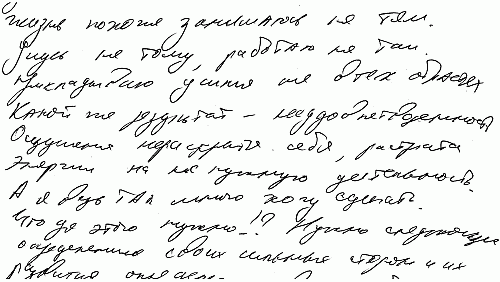 жизнь похожа занимаюсь не тем.
Учусь не тому, работаю не там.
Прикладываю усилия не в тех областях
Какой же результат - неудовлетворенность
Ощущение нераскрытия себя, растрата
Энергии на ненужную деятельность.
А я ведь так много хочу сделать.
Что для этого нужно_!? Нужно следующее
определение своих сильных сторон и их
развития